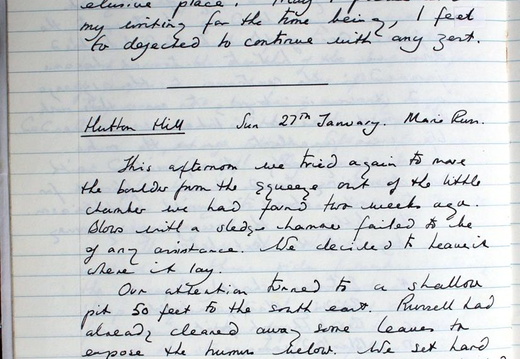 elusive place. May I
my writing for the time being, I feel
to dejected to continue with any zest.
Hutton Hill Sun 27th January. Main Run.
This afternoon we tried again to move
the boulder from the squeeze out of the little
chamber we had found two weeks ago.
Blows with a sledge hammer failed to be
of any assistance. We decided to leave it
where it lay.
Our attention turned to a shallow
pit 50 feet to the south east. Russell had
already cleared away some leaves to
expose the humus below. We set hard